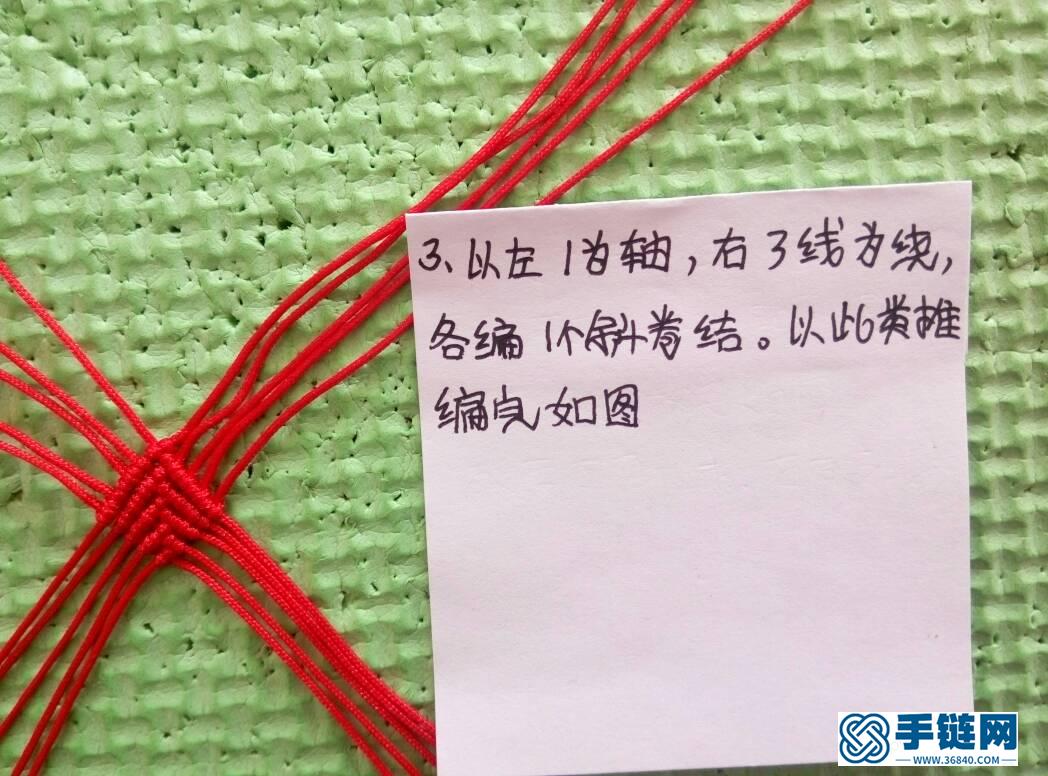 3、以左1为轴，右3线为绕，
各编1个斜卷结。以此类推
编完如图
手链网
WWW.36840.COM